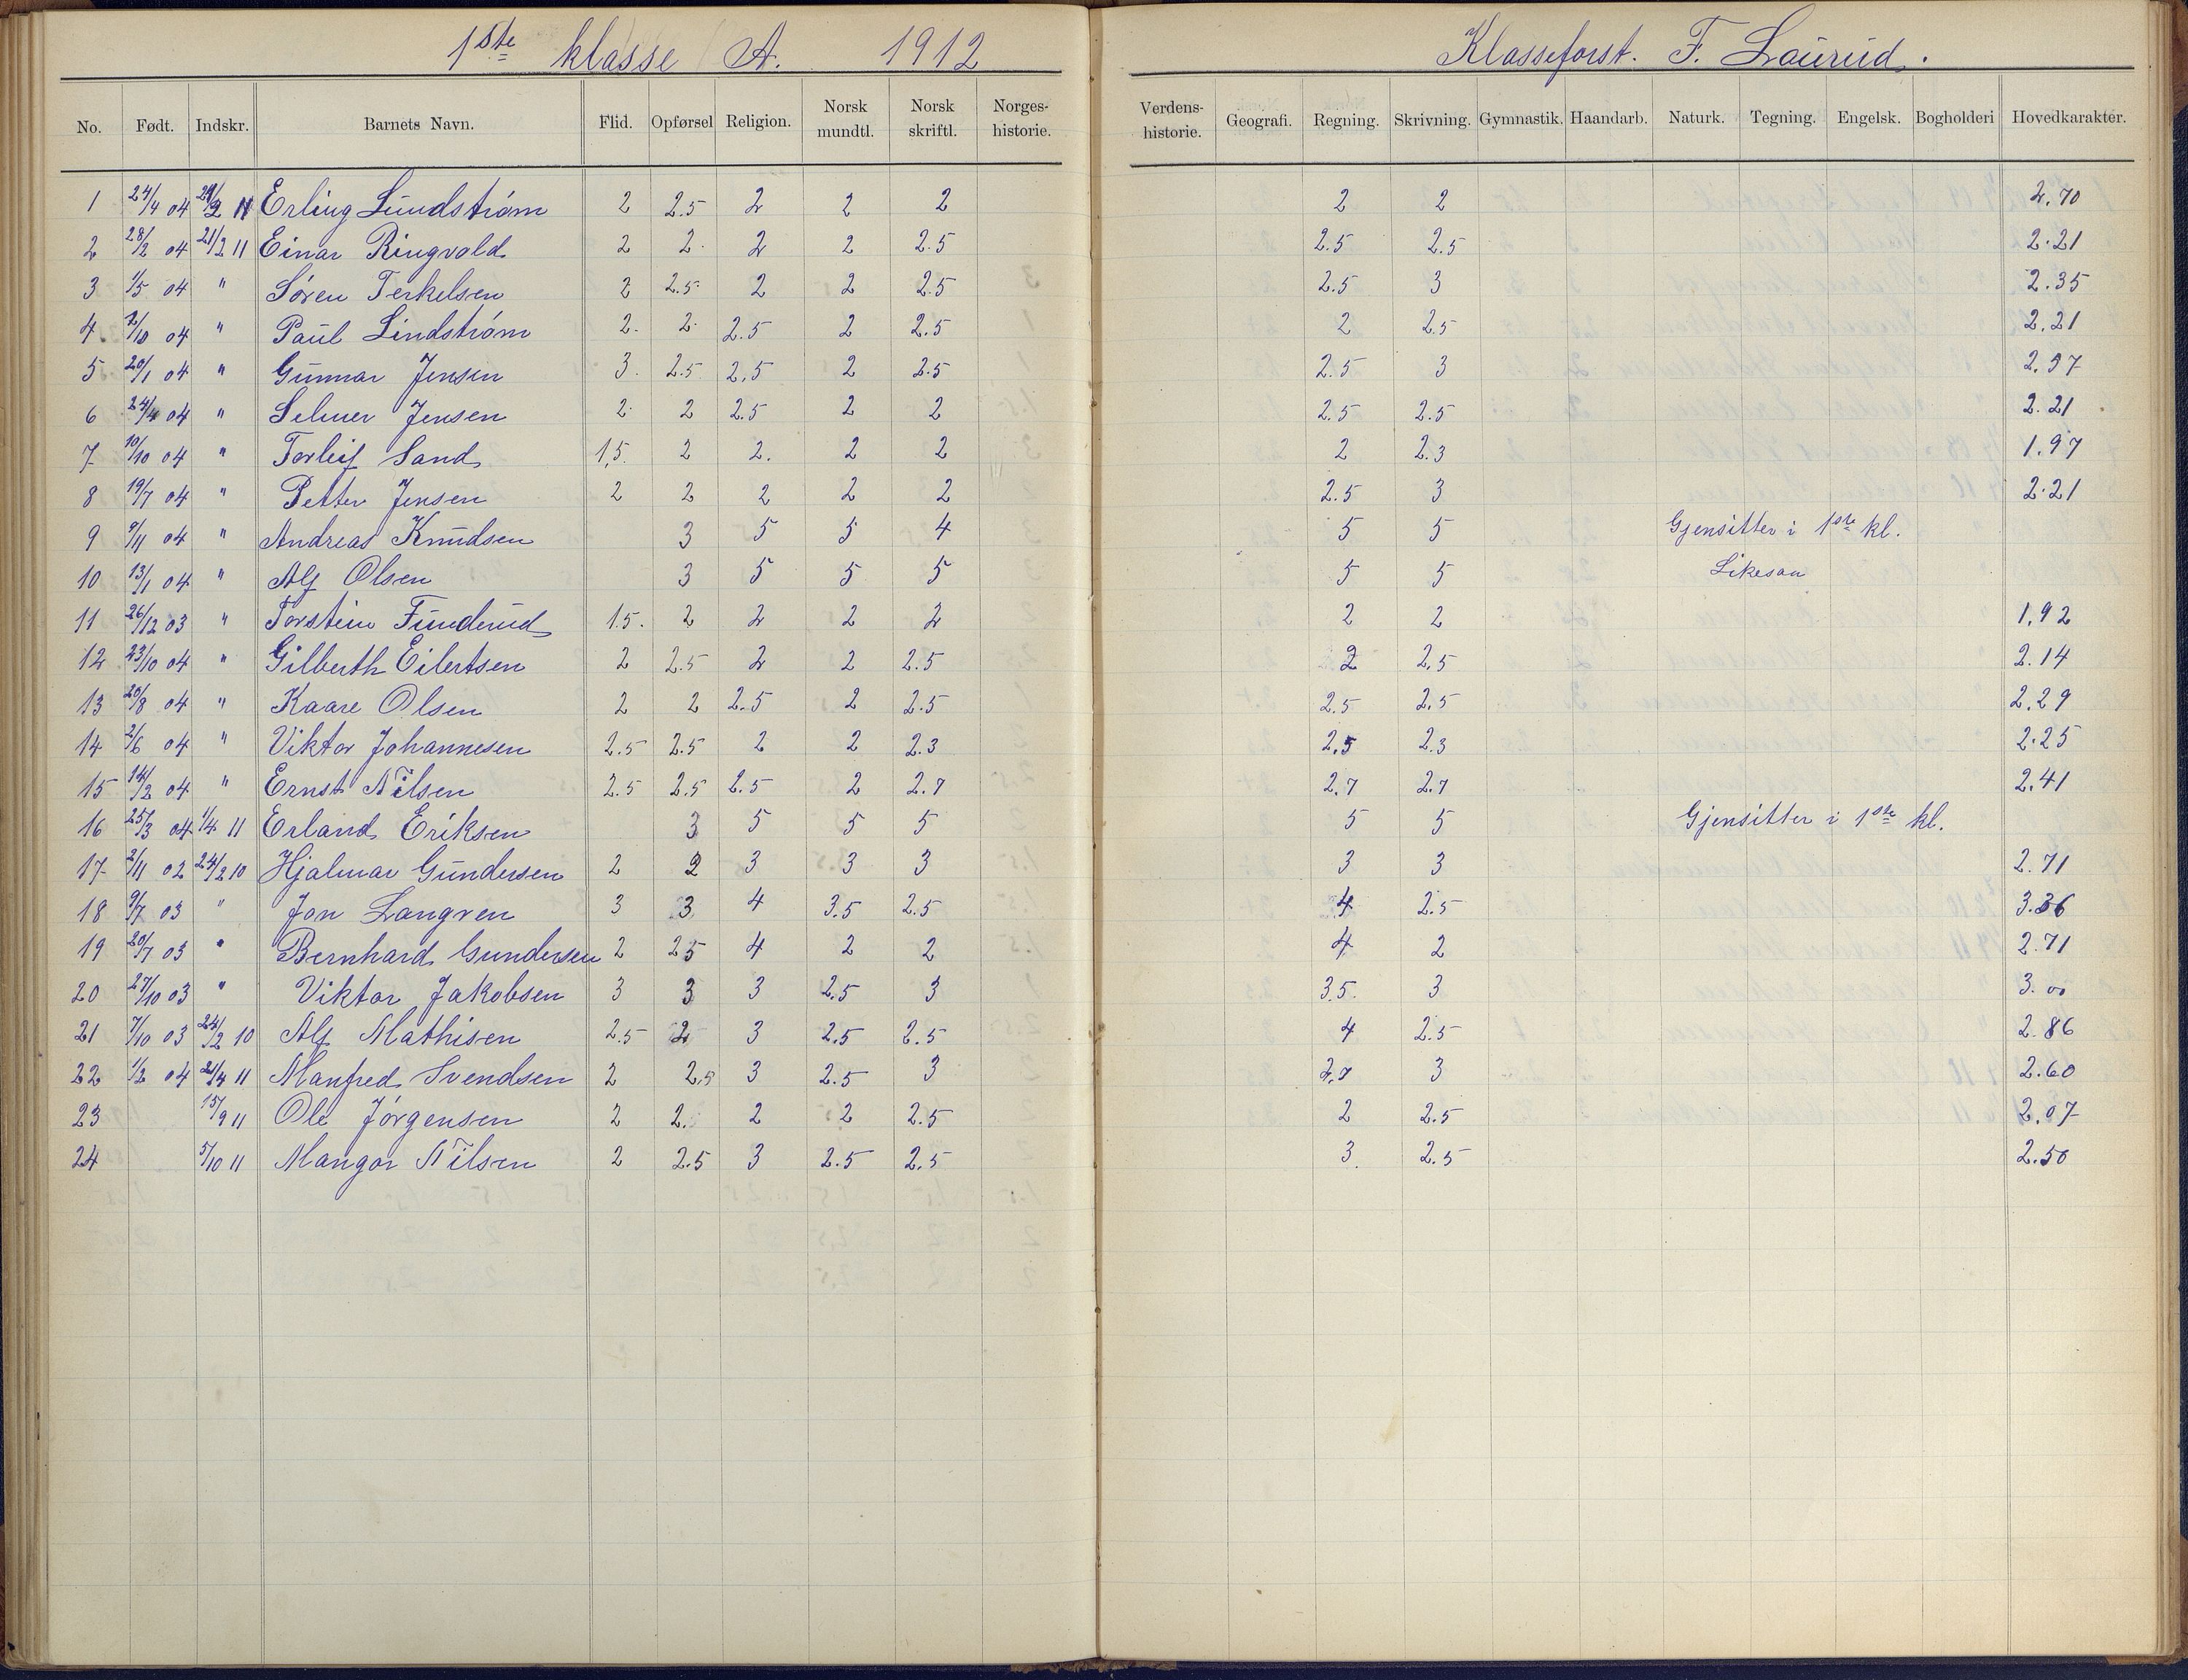 1ste klasse A. 1912 Klasseforst. F. Laurud.
No. Født. Indskr. Barnets Navn. Flid. Opførsel Religion. Norsk mundtl. Norsk skriftl. Norges-historie. Verdens-historie. Geografi. Regning. Skrivning. Gymnastik. Haandarb. Naturk. Tegning. Engelsk. Bogholderi Hovedkarakter.
1 24/4 04 11 Erling Lundstrøm 2 2.5 2 2 2 2 2 2.70
2 28/2 04 21/2 11 Einar Ringvold 2 2. 2 2 2.5 2.5 2.5 2.21
3 1/5 04 " Søren Terkelsen 2 2.5 2 2 2.5 2.5 3 2.35
4 04 " Paul Lindstrøm 2. 2. 2.5 2 2.5 2 2.5 2.21
5 20/1 04 " Gunnar Jensen 3. 2.5 2.5 2 2.5 2.5 3 2.57
6 24/4 04 " Selmer Jensen 2. 2 2.5 2 2 2.5 2.5 2.21
7 10/10 04 " Torleif Sand 1,5. 2 2. 2 2 2 2.3 1.97
8 19/7 04 " Petter Jensen 2 2 2 2 2 2.5 3 2.21
9 9/11 04 " Andreas Knudsen 3 5 5 4 5 5 Gjensitter i 1ste kl.
10 13/1 04 " Alf Olsen 3 5 5 5 5 5 Likesaa
11 26/12 03 " Torstein Funderud 1.5. 2 2 2 2 2 2 1,92
12 23/10 04 " Gilberth Eilertsen 2 2.5 2 2 2.5 2 2.5 2.14
13 20/8 04 " Kaare Olsen 2 2 2.5 2 2.5 2.5 2.5 2.29
14 2/6 04 " Viktor Johannesen 2.5 2.5 2 2 2.3 2.5 2.3 2.25
15 14/2 04 " Ernst Nilsen 2.5 2.5 2.5 2 2.7 2.7 2.7 2.41
16 25/3 04 1/4 11 Erland Eriksen 3 5 5 5 5 5 Gjensitter i 1ste kl.
17 2/11 02 24/2 10 Hjalmar Gundersen 2 2 3 3 3 3 3 2.71
18 9/7 03 " Jon Langven 3 3 4 3.5 2.5 4 2.5 3.36
19 20/7 03 " Bernhard Gundersen 2 2.5 4 2 2 4 2 2.71
20 27/10 03 " Viktor Jakobsen 3 3 3 2.5 3 3.5. 3 3.00
21 7/10 03 24/2 10 Alf Mathisen 2.5 2 3 2.5 2.5 4 2.5 2.86
22 1/2 04 21/4 11 Manfred Svendsen 2 2.5 3 2.5 3 2.7 3 2.60
23 15/9 11 Ole Jørgensen 2 2. 2 2 2.5 2 2.5 2.07
24 5/10 11 Mangor Nilsen 2 2.5 3 2.5 2.5 3. 2.5 2.50